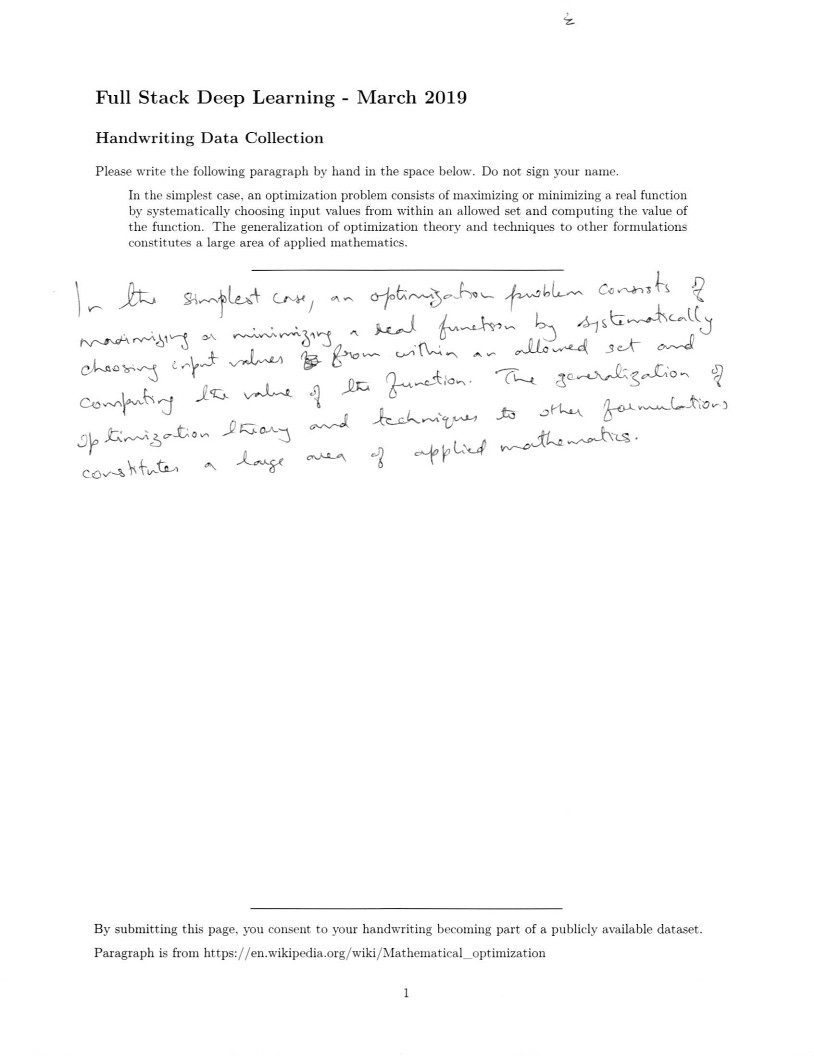 Full Stack Deep Learning - March 2019
Handwriting Data Collection
Please write the following paragraph by hand in the space below. Do not sign your name.
In the simplest case, an optimization problem consists of maximizing or minimizing a real function
by systematically choosing input values from within an allowed set and computing the value of
the function. The generalization of optimization theory and techniques to other formulations
constitutes a large area of applied mathematics.
In the simplest case, an optimization problem consists of
maximizing or minimizing a real function by systematically
choosing input values from within an allowed set and
computing the value of the function. The generalization of
optimization theory and techniques to other formulations
constitutes a large area of applied mathematics.
By submitting this page, you consent to your handwriting becoming part of a publicly available dataset.
Paragraph is from https://en.wikipedia.org/wiki/Mathematical_optimization
1